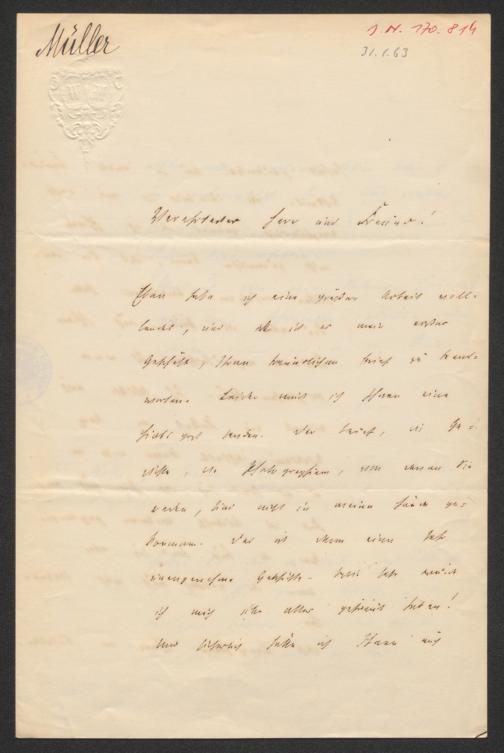 Müller
J.N. 170.814
31.1.63
Verehrtester Herr und Freund!
Eben habe ich eine größere Arbeit voll-
endet, und ist es mein erstes
Geschäft, Ihren freundlichen Brief zu beant-
worten. Leider muß ich Ihnen eine
senden. Der Brief, die Ge-
dichte, die Photographien, von denen Sie
reden, sind nicht in meine Hände ge-
kommen. Das ist denn eine sehr
unangenehme Geschichte.
ich mich über alles gefreut haben!
Und hätte ich Ihnen auch